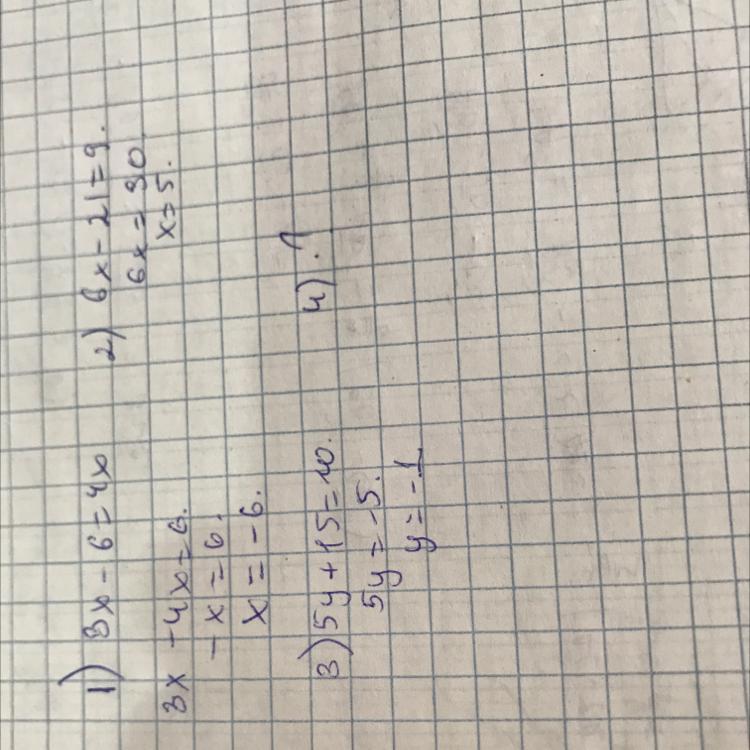 1) 3x - 6 = 4x
3x - 4x = 6.
- x = 6.
x = - 6.
2) 6x - 21 = 9.
6x = 30.
x = 5.
3) 5y + 15 = 10.
5y = -5.
y = -1
4)